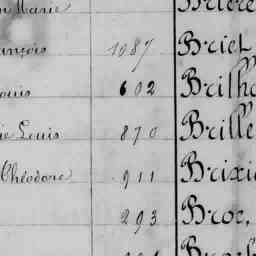 Marie
ançois 1087 Briet
ouis 602 Brilh
ie Louis 870 Brille
Théodore 911 Brixi
293 Broc,